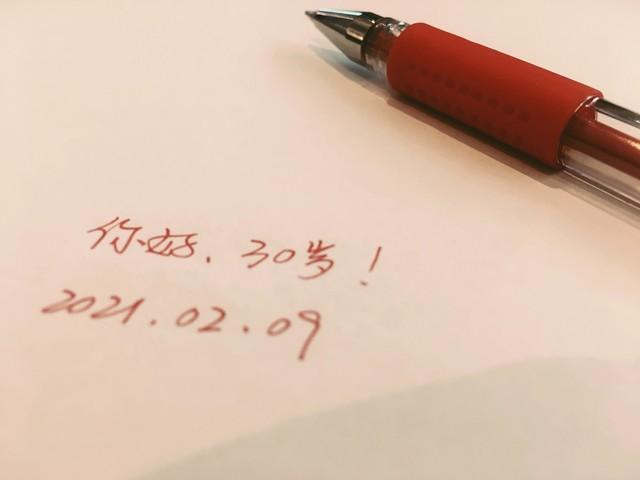 你好，30岁！
2021.02.09